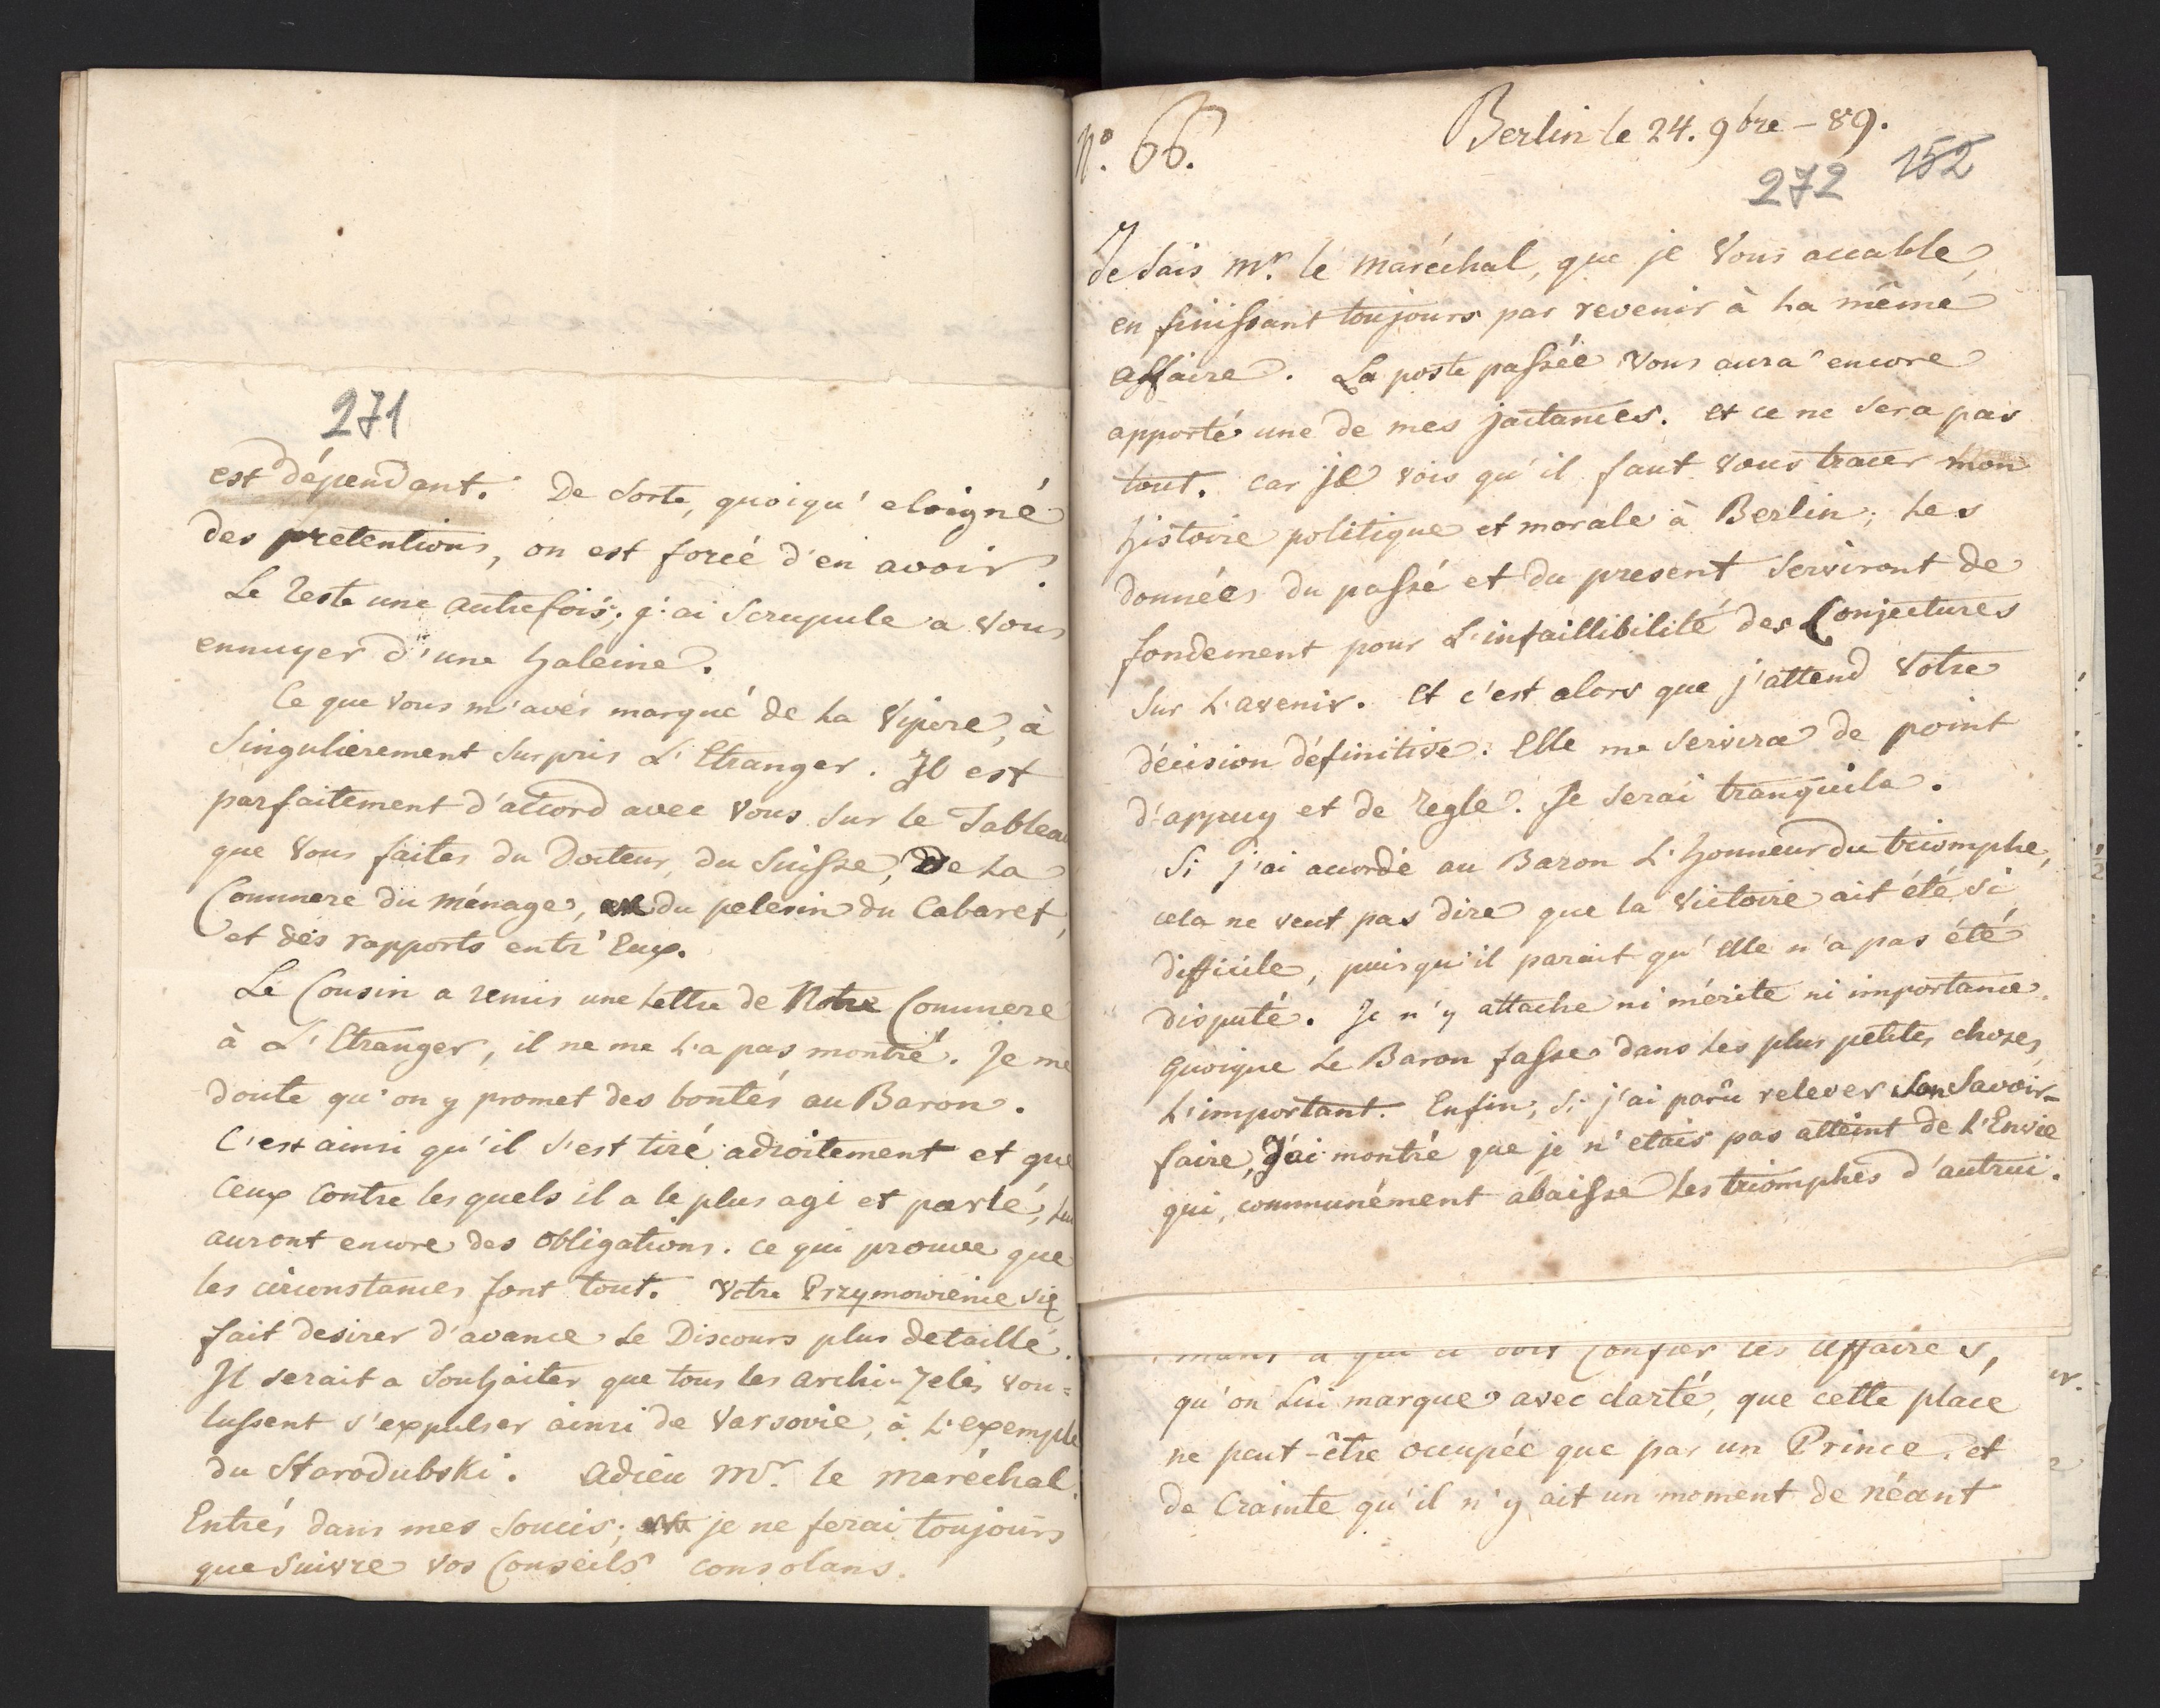 271
est dépendant. De sorte, quoiqu' eloigné
des pretentions, on est forcé d'en avoir.
Le reste une autrefois; j'ai scrupule a vous
ennuyer d'une haleine.
Ce que vous m'avés marqué de la Vipere, à
singulierement surpris L'Etranger. Il est
parfaitement d'accord avec vous sur le Tableau
que vous faites du Docteur, du Suisse, de La
Commere du ménage, du pelerin du Cabaret,
et des rapports entr' Eux.
Le Cousin a remis une Lettre de Notre Commere
à L'Etranger, il ne me L'a pas montré. Je me
doute qu'on y promet des bontés au Baron.
C'est ainsi qu'il s'est tiré adroitement et que
ceux contre lesquels il a le plus agi et parlé, lui
auront encore des obligations. ce qui prouve que
les circonstances font tout. Votre Przymowienie się
fait desirer d'avance Le Discours plus detaillé.
Il serait a souhaiter que tous les archi-Zelés vou=
lussent s'expulser ainsi de Varsovie, à L'exemple
du Starodubski. Adieu Mr. le Maréchal.
Entrés dans mes soucis; je ne ferai toujours
que suivre vos Conseils consolans.
No. 66.
Berlin le 24. 9bre - 89.
272 152
Je sais Mr. le Maréchal, que je Vous accable,
en finissant toujours par revenir à La même
affaire. La poste passée Vous aura encore
apporté une de mes jactances. et ce ne sera pas
tout. car je vois qu'il faut vous tracer mon
histoire politique et morale à Berlin; Les
données du passé et du present serviront de
fondement pour L'infaillibilité des Conjectures
sur L'avenir. Et c'est alors que j'attend Votre
décision définitive. Elle me servira de point
d'appuy et de regle. Je serai tranquile.
Si j'ai accordé au Baron L'honneur du triomphe,
cela ne veut pas dire que la Victoire ait été si
difficile, puisqu'il parait qu'elle n'a pas été
disputé. Je n'y attache ni mérite ni importance.
quoique Le Baron fasse dans Les plus petites choses,
L'important. Enfin, si j'ai parû relever son savoir-
faire, J'ai montré que je n'etais pas atteint de L'Envie
qui, communément abaisse Les triomphes d'autrui.
à qui il doit Confier ses affaires,
qu'on Lui marque avec clarté, que cette place
ne peut-être occupée que par un Prince. et
de Crainte qu'il n'y ait un moment de néant